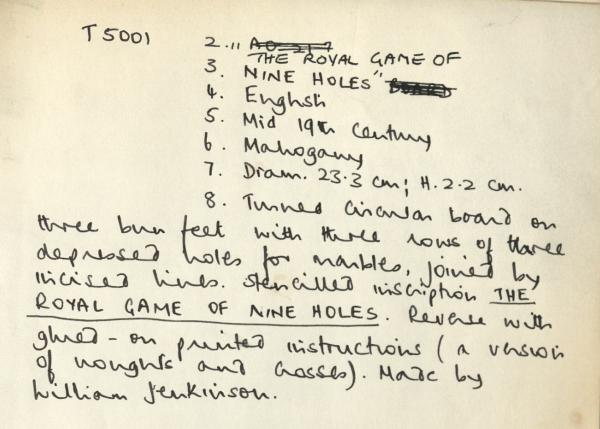 T5001
2. "
THE ROYAL GAME OF
3. NINE HOLES"
4. English
5. Mid 19th Century
6. Mahogany
7. Diam. 23.3 cm; H. 2.2 cm.
8. Turned circular board on
three bun feet with three rows of three
depressed holes for marbles, joined by
incised lines. Stencilled inscription THE
ROYAL GAME OF NINE HOLES. Reverse with
glued-on printed instructions (a version
of noughts and crosses). Made by
William Jenkinson.